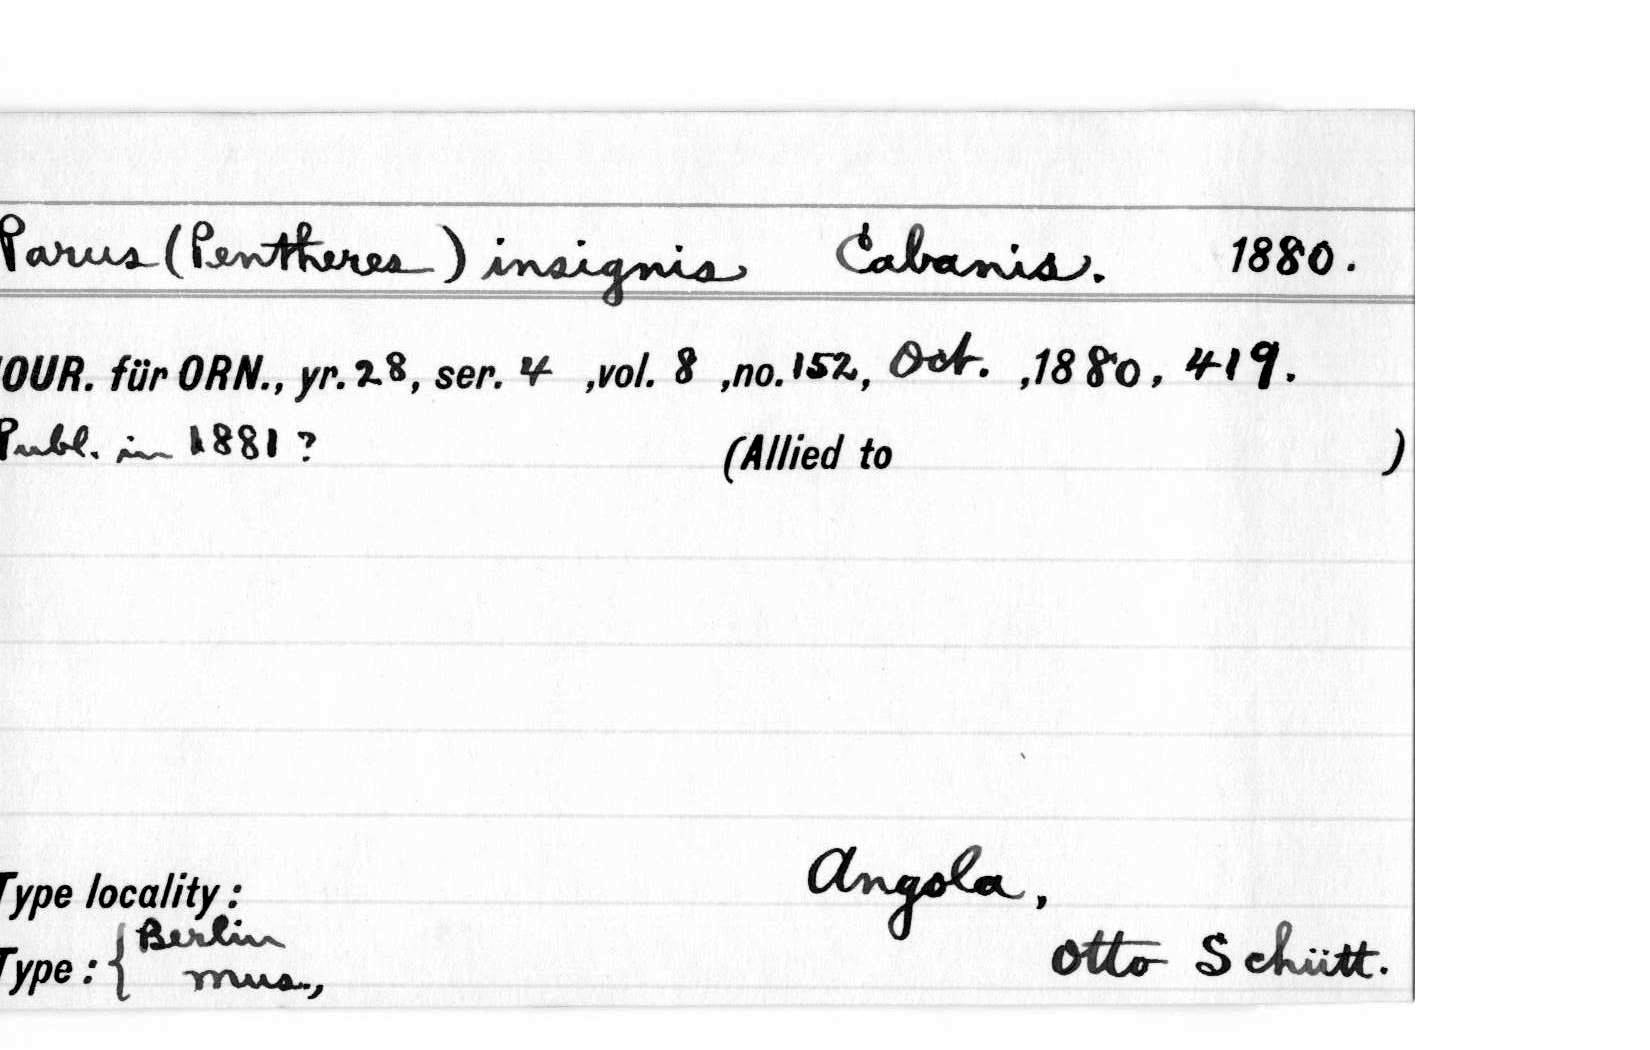 Parus (Pentheres) insignis Cabanis. 1880.
OUR. für ORN., yr. 28, ser. 4 ,vol. 8 ,no. 152, Oct. ,1880, 419.
Publ. in 1881? (Allied to )
Type locality: Angola,
Berlin
Type: { mus., Otto Schütt.